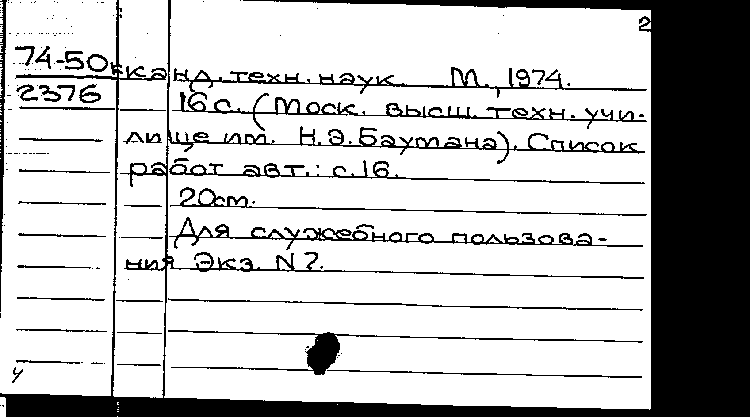 2
74-50к канд. техн. наук. М., 1974.
2376 16 с. (Моск. высш. техн. учи-
лище им. Н.Э.Баумана). Список
работ авт.: с.16.
20см.
Для служебного пользова-
ния Экз. N 7.